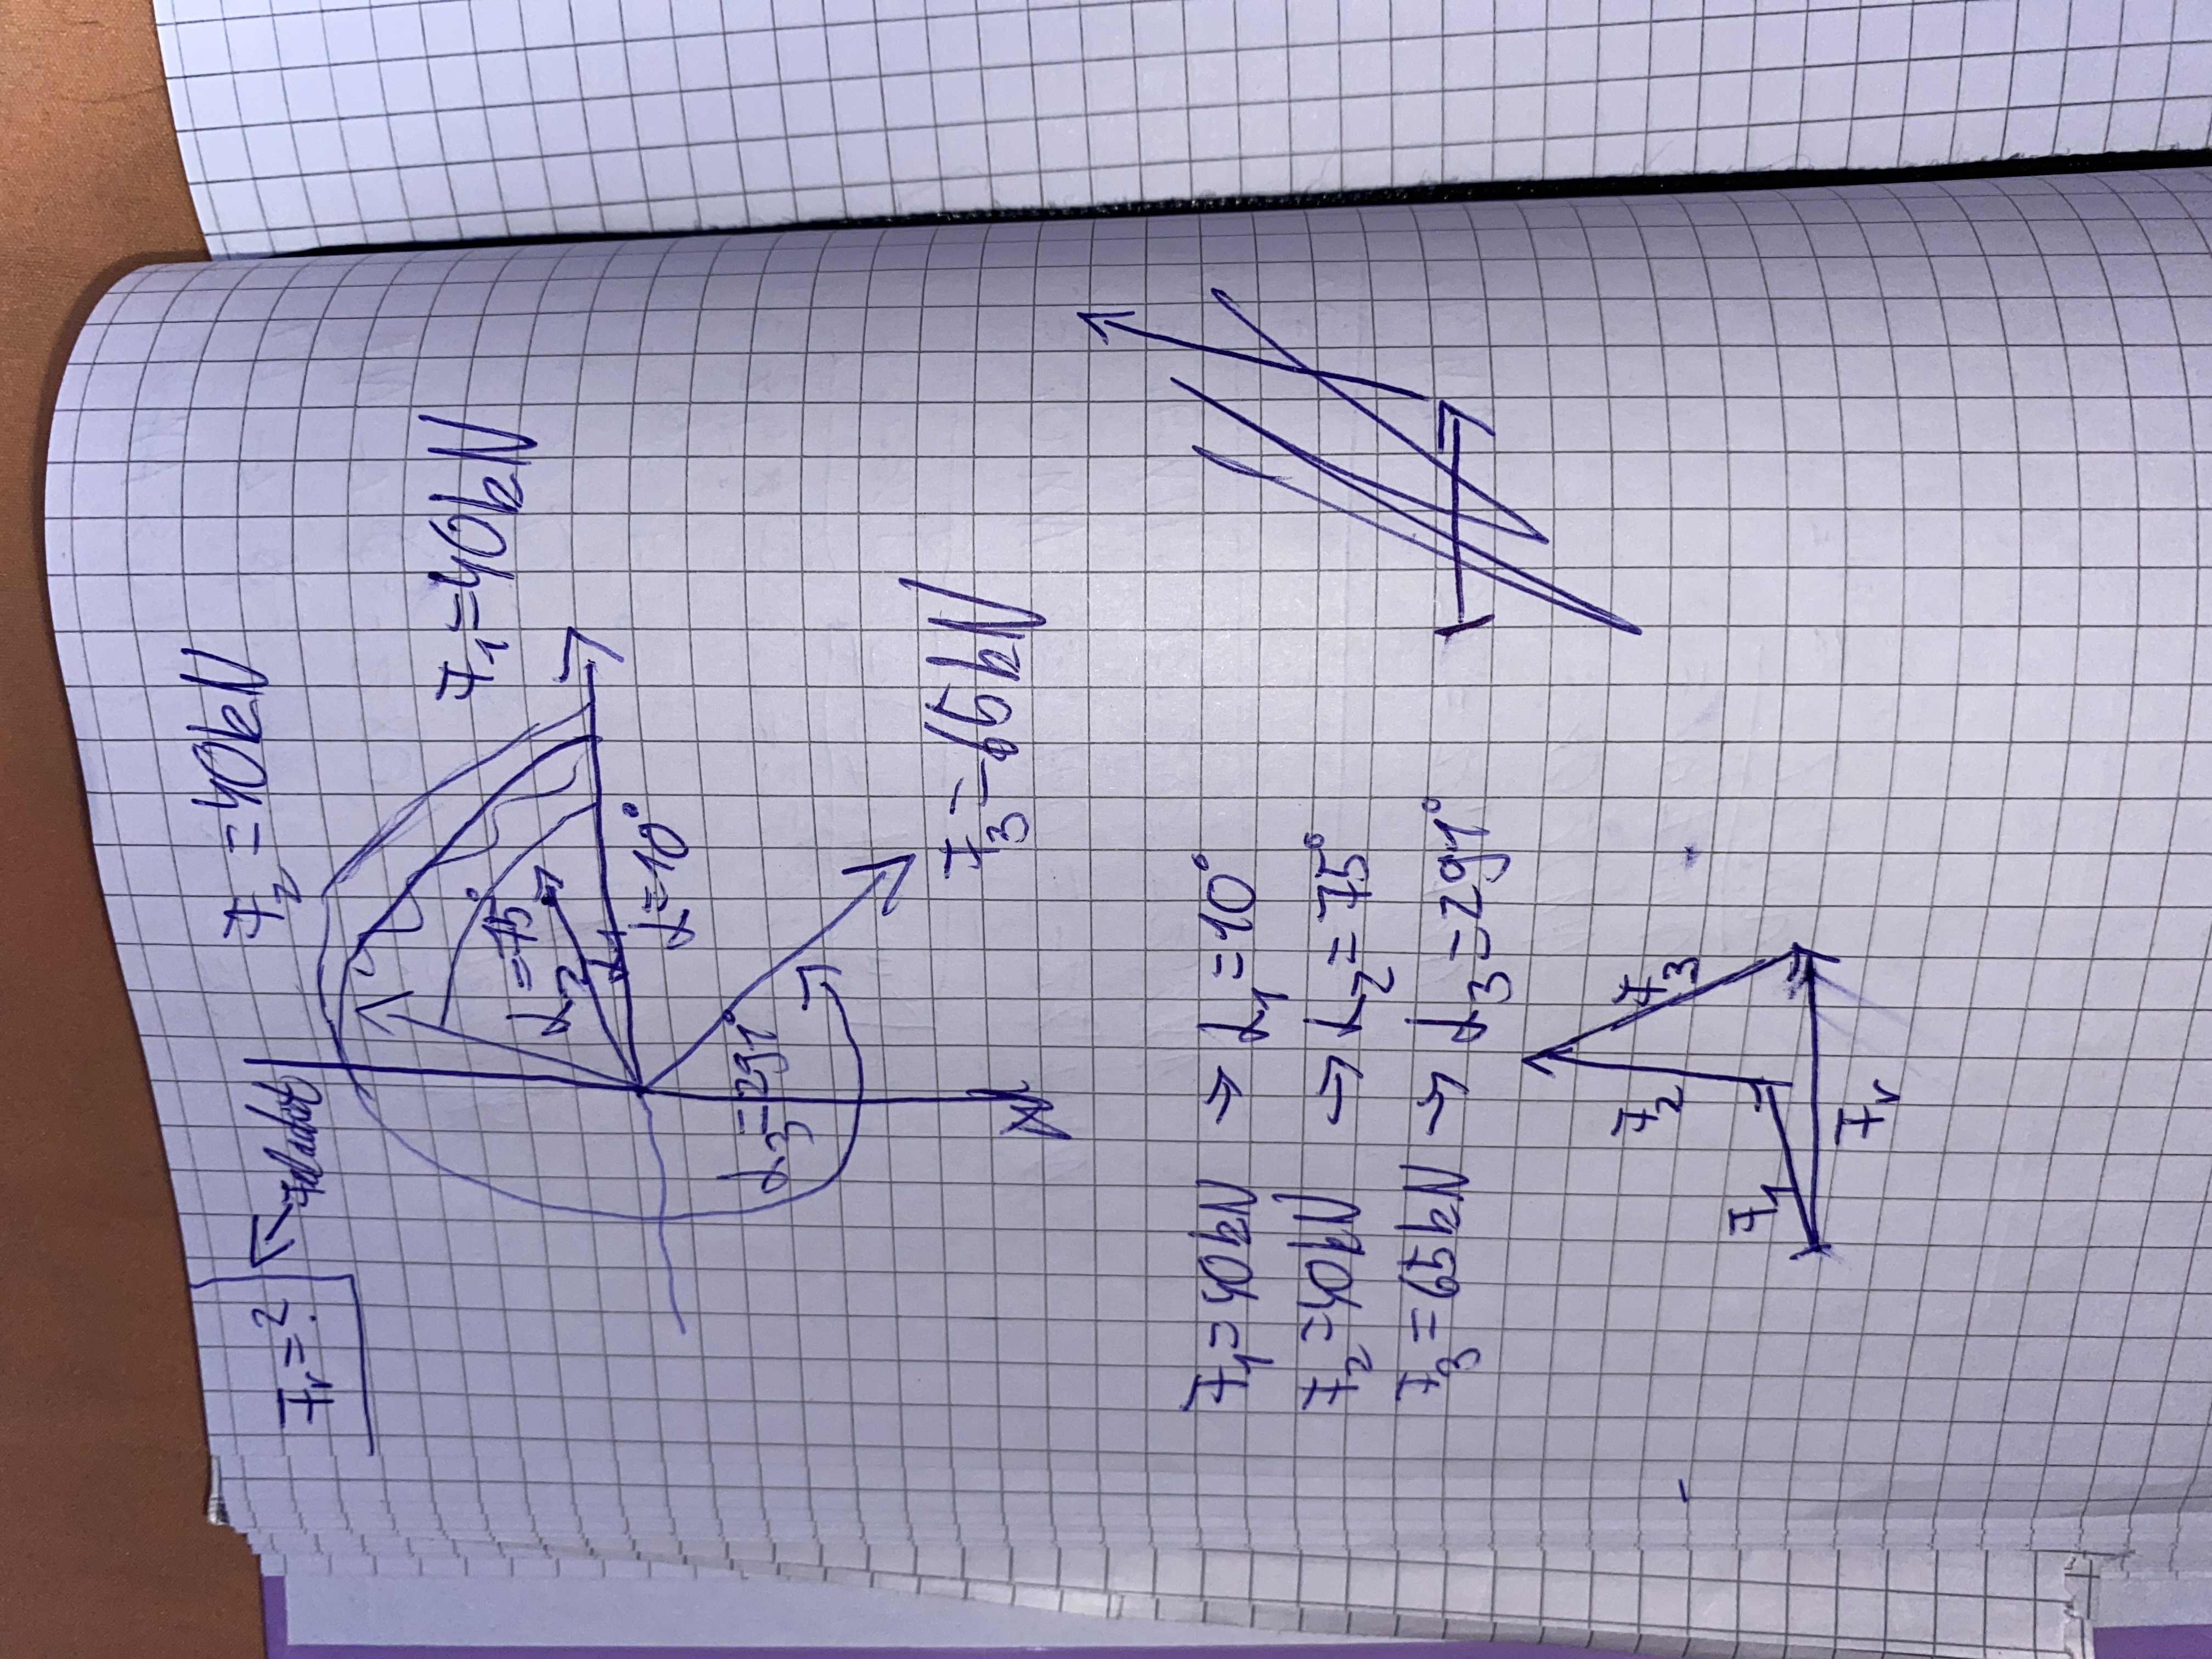 F₂=40kN
Fr=?
F₁=40kN
α₂=75°
α₁
α=10°
α₃=291°
F₃=65kN
F₁=40kN → α₁=10°
F₂=40kN → α₂=75°
F₃=65kN → α₃=291°
F₂ F₃
F₁
Fr